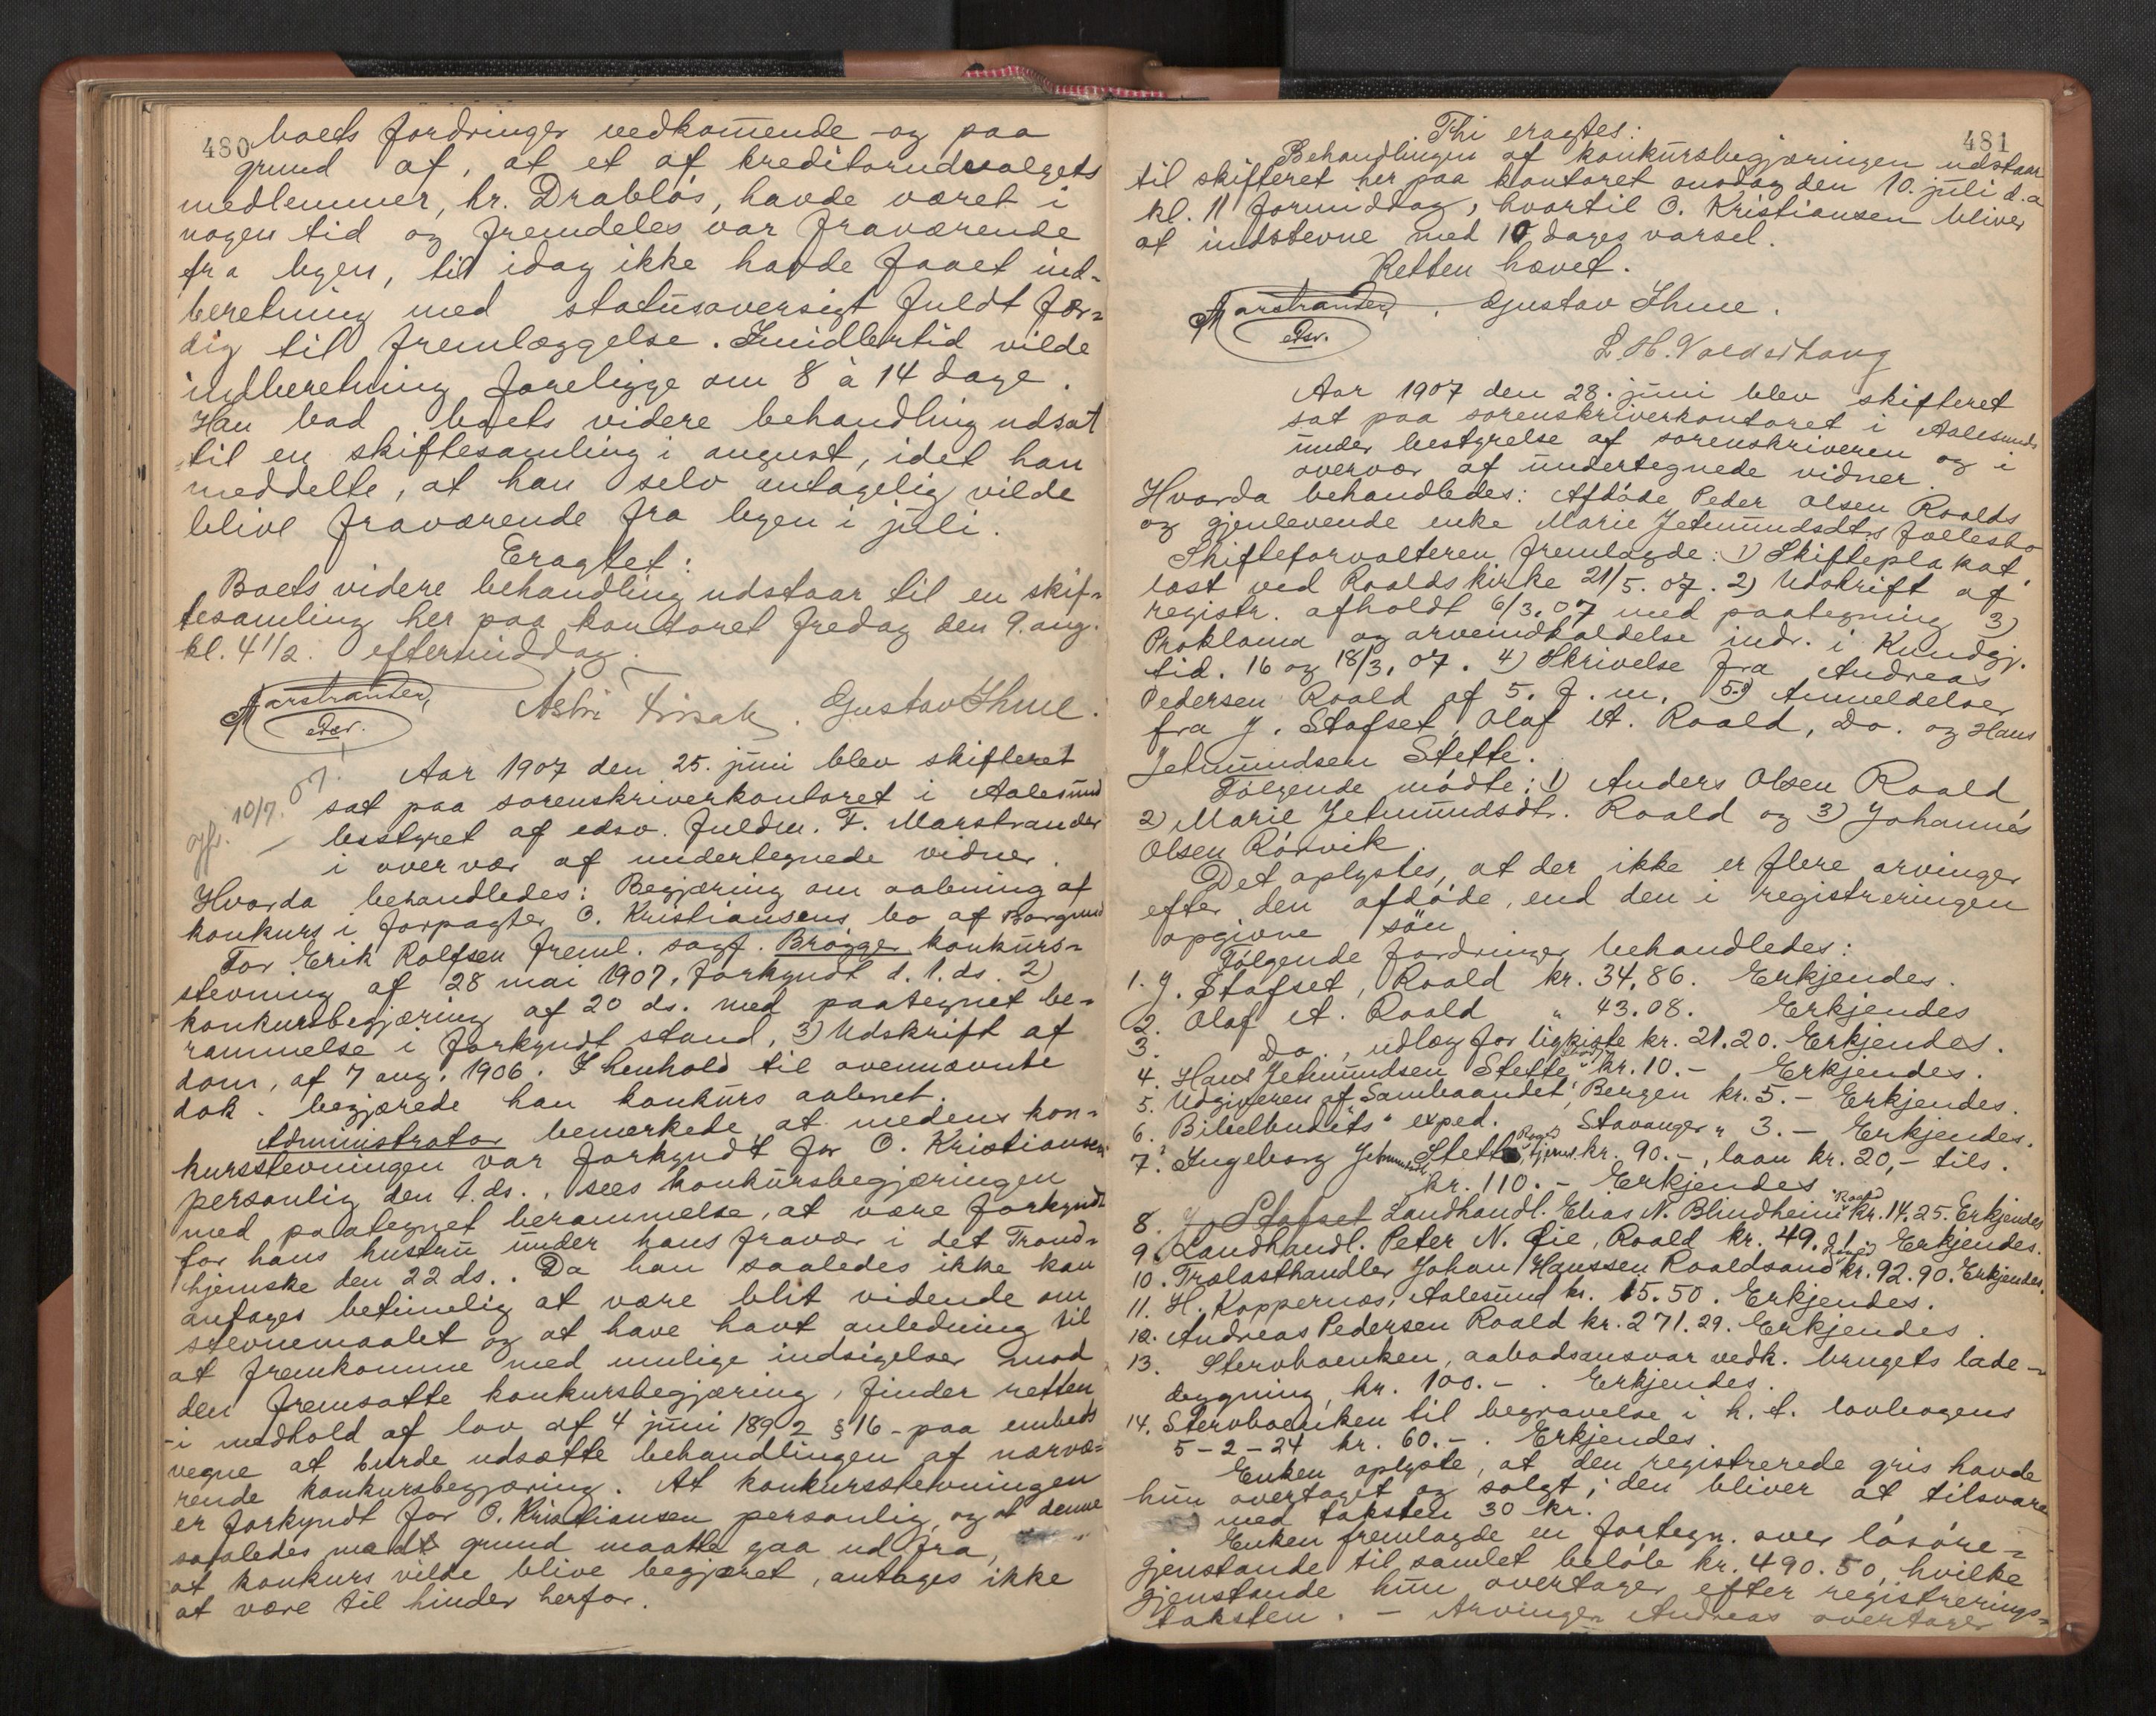 480
boets fordringer vedkommende og paa
grund af, at et af kreditorudvalgets
medlemmer, hr. Drabløs, havde været i
nogen tid og fremdeles var fraværende
fra byen, til idag ikke havde faaet ind-
beretning med statusoversigt fuldt fær-
dig til fremlæggelse. Imidlertid vilde
indberetning foreligge om 8 à 14 dage.
Han bad boets videre behandling udsat
til en skiftesamling i august, idet han
meddelte, at han selv antagelig vilde
blive fraværende fra byen i juli.
Eragtet:
Boets videre behandling udstaar til en skif-
tesamling her paa kontoret fredag den 9. aug.
kl. 4 1/2. eftermiddag.
Marstrander, Astri . Gustav Thue.
edsv.
Aar 1907 den 25. juni blev skifteret
sat paa sorenskriverkontoret i Aalesund
bestyret af edsv. fuldm. F. Marstrander
i overvær af undertegnede vidner.
ofr. 10/7. 07.
Hvorda behandledes: Begjæring om aabning af
konkurs i forpagter O. Kristiansens bo af Borgund
For Erik Rolfsen freml. sagf. Brøgger konkurs-
stevning af 28 mai 1907, forkyndt d. 1. ds. 2)
konkursbegjæring af 20 ds. med paategnet be-
rammelse i forkyndt stand, 3) Udskrift af
dom, af 7 aug. 1906. I henhold til ovennævnte
dok. begjærede han konkurs aabnet.
Administrator bemerkede, at medens kon-
kursstevningen var forkyndt for O. Kristiansen
personlig den 1. ds., sees konkursbegjæringen
med paategnet berammelse, at være forkyndt
for hans hustru under hans fravær i det Trond-
hjemske den 22 ds.. Da han saaledes ikke kan
antages betimelig at være blit vidende om
stevnemaalet og at have havt anledning til
at fremkomme med mulige indsigelser mod
den fremsatte konkursbegjæring, finder retten
-i medhold af lov af 4 juni 1892 § 16 - paa embeds
vegne at burde udsætte behandlingen af nærvæ-
rende konkursbegjæring. At konkursstevningen
er forkyndt for O. Kristiansen personlig, og at denne
saaledes med grund maatte gaa ud fra,
at konkurs vilde blive begjæret, antages ikke
at være til hinder herfor.
481
Thi eragtes:
Behandlingen af konkursbegjæringen udstaar
til skifteret her paa kontoret onsdag den 10. juli d.a
kl. 11 formiddag, hvortil O. Kristiansen bliver
at indstevne med 10 dages varsel.
Retten hævet.
Marstrander, . Gustav Thue.
edsv.
L. H. Valderhaug
Aar 1907 den 28. juni blev skifteret
sat paa sorenskriverkontoret i Aalesund
under bestyrelse af sorenskriveren og i
overvær af undertegnede vidner.
Hvorda behandledes: Afdøde Peder Olsen Roalds
og gjenlevende enke Marie Jetmundsdtrs fællesbo
Skifteforvalteren fremlagde: 1) Skifteplakat,
læst ved Roalds kirke 21/5. 07. 2) Udskrift af
registr. afholdt 6/3. 07 med paategning 3)
Proklama og arveindkaldelse indr. i Kundgj.
tid. 16 og 18/3. 07. 4) Skrivelse fra Andreas
Pedersen Roald af 5. f. m. 5) Anmeldelser
fra J. Stafset, Olaf A. Roald, Do. og Hans
Jetmundsen Stette.
Følgende mødte: 1) Anders Olsen Roald,
2) Marie Jetmundsdtr. Roald og 3) Johannes
Olsen Rørvik.
Det oplystes, at der ikke er flere arvinger
efter den afdøde, end den i registreringen
opgivne søn
Følgende fordringer behandledes:
1. J. Stafset, Roald kr. 34,86. Erkjendes.
2. Olaf A. Roald " 43.08. Erkjendes
3. Do., udlæg for ligkiste kr. 21.20. Erkjendes.
4. Hans Jetmundsen Stette kr. 10.- Erkjendes.
5. Udgiveren af "Sambaandet", Bergen kr. 5.- Erkjendes.
6. "Bibelbudets" exped. Stavanger " 3.- Erkjendes.
7. Ingeborg Jetmundsdtr Stette, Roald tjenl. kr. 90.-, laan kr. 20,- tils.
kr. 110.- Erkjendes
8. J. Stafset Landhandl. Elias N. Blindheim Roald kr. 14.25. Erkjendes
9. Landhandl. Peter N. Gie, Roald kr. 49.21 Erkjendes.
10. Trælasthandler Johan Hanssen Roaldsand kr. 92.90. Erkjendes
11. H. Koppernæs, Aalesund kr. 15.50. Erkjendes.
12. Andreas Pedersen Roald kr. 271.29. Erkjendes.
13. Stervboenken, aabodsansvar vedk. brugets lade-
bygning, kr. 100.-. Erkjendes.
14. Stervboenken til begravelse i h. t. lovbogens
5-2-24 kr. 60.-. Erkjendes.
Enken oplyste, at den registrerede gris havde
hun overtaget og solgt; den bliver at tilsvare
med taksten 30 kr.
Enken fremlagde en fortegn. over løsøre-
gjenstande til samlet beløb kr. 490.50, hvilke
gjenstande hun overtager efter registrerings-
taksten. - Arvingen Andreas overtager